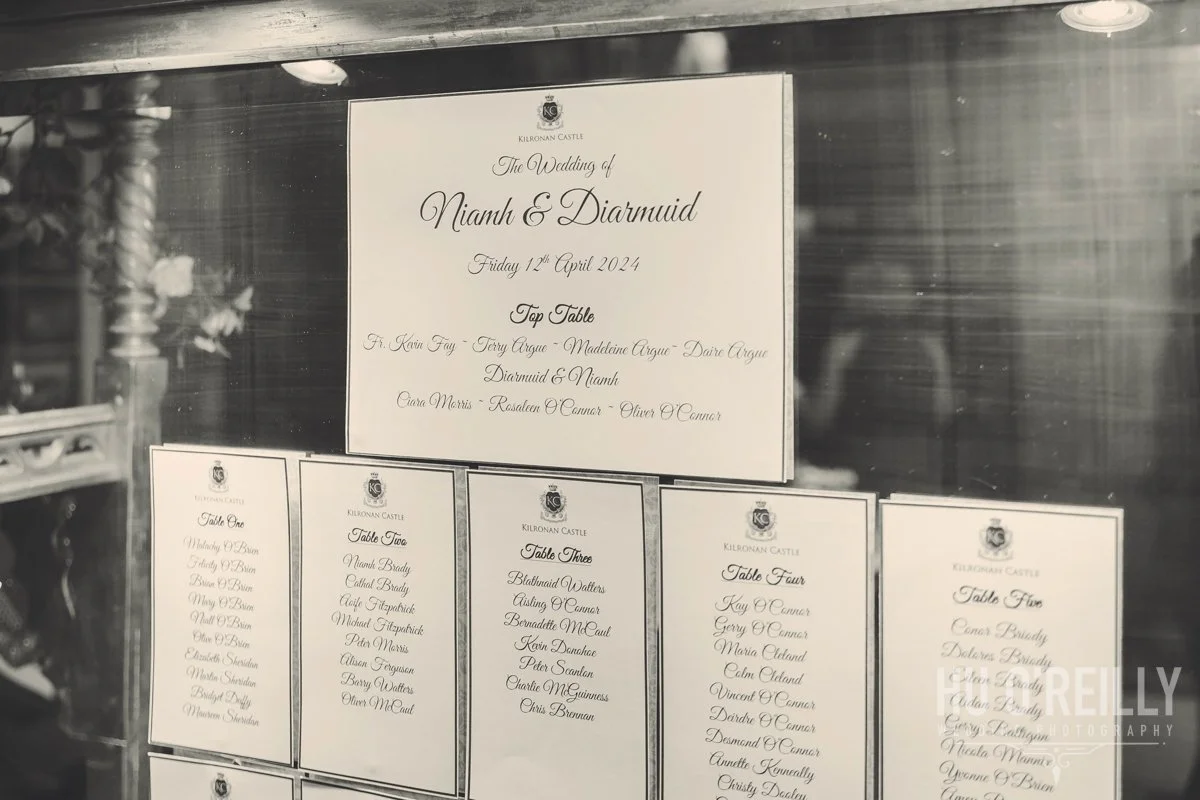 KC
KILRONAN CASTLE
The Wedding of
Niamh & Diarmuid
Friday 12th April 2024
Top Table
Fr. Kevin Fay ~ Terry Argue ~ Madeleine Argue ~ Daire Argue
Diarmuid & Niamh
Ciara Morris ~ Rosaleen O'Connor ~ Oliver O'Connor
KC
KILRONAN CASTLE
Table One
Malachy O'Brien
Felicity O'Brien
Brian O'Brien
Mary O'Brien
Niall O'Brien
Olive O'Brien
Elizabeth Sheridan
Martin Sheridan
Bridget Duffy
Maureen Sheridan
KC
KILRONAN CASTLE
Table Two
Niamh Brady
Cathal Brady
Aoife Fitzpatrick
Michael Fitzpatrick
Peter Morris
Alison Ferguson
Barry Watters
Oliver McCaul
KC
KILRONAN CASTLE
Table Three
Blathnaid Watters
Aisling O'Connor
Bernadette McCaul
Kevin Donohoe
Peter Scanlon
Charlie McGuinness
Chris Brennan
KC
KILRONAN CASTLE
Table Four
Kay O'Connor
Gerry O'Connor
Maria Cleland
Colm Cleland
Vincent O'Connor
Deirdre O'Connor
Desmond O'Connor
Annette Kenneally
Christy Dooley
KC
KILRONAN CASTLE
Table Five
Conor Briody
Dolores Briody
Eileen Brady
Aidan Brady
Gerry
Nicola Mannix
Yvonne O'Brien
PHOTOGRAPHY